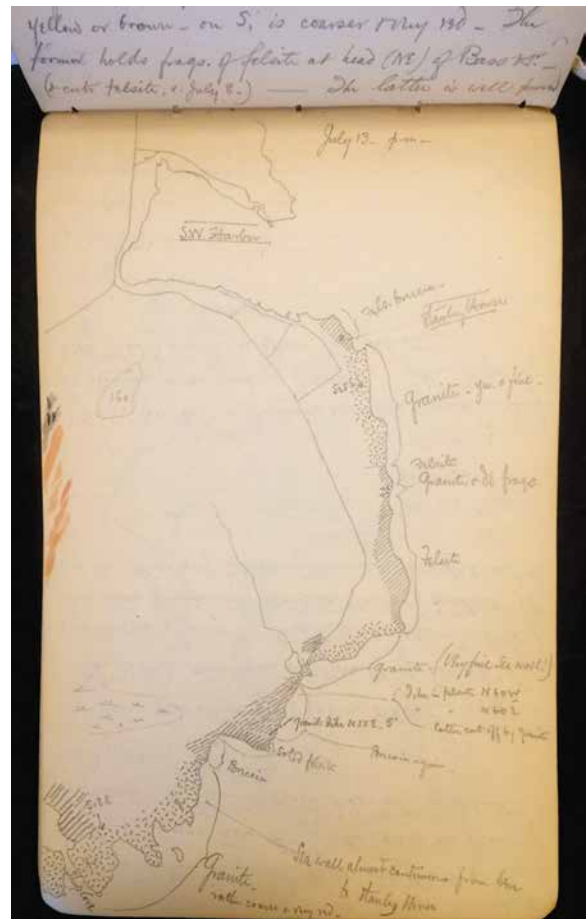 yellow or brown - on S, is coarser & very red - The
former holds frags. of felsite at head (NE) of Bass Hr. -
(& cuts felsite, v. July 8.) — The latter is well
July 13 - p.m. -
S.W. Harbor
breccia
Stanley House
Granite - & fine -
160
Felsite
Granite & frags
Felsite
Granite - (Very fine)
Dike in felsite N40W
" " N60E
latter cut off by granite
Granite dike N55E, 5'
Solid felsite
Breccia again
Breccia
Sea wall almost continuous from here
to Stanley House
Granite -
rather coarse & very red -